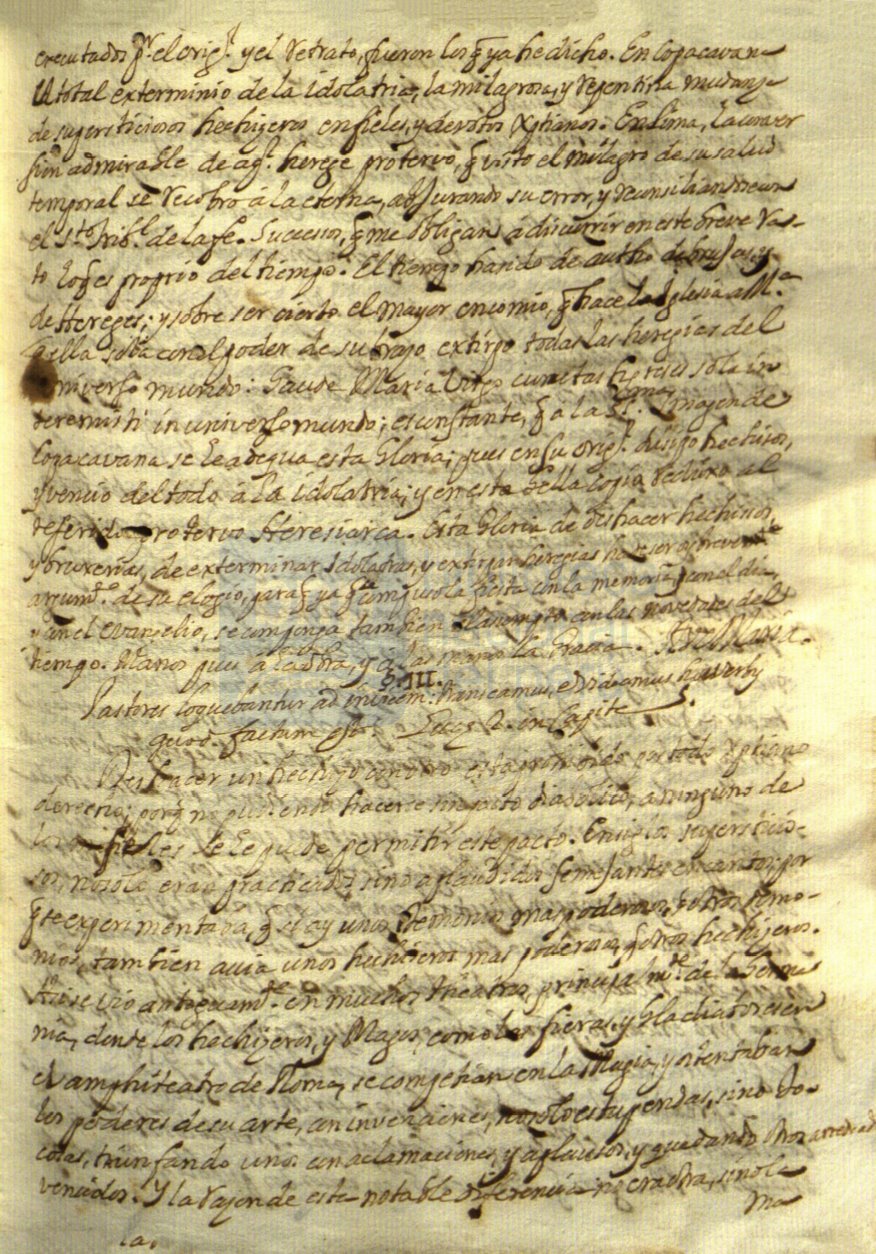 executados pr. el orig.l y el retrato, fueron los q ya he dicho. En Copacavana
el total exterminio de la idolatria, la milagrosa, y repentina mudanza
de supersticiosos hechizeros en fieles, y devotos Xptianos. En Lima, la conver
sion admirable de herege protervo, q visto el milagro de su salud
temporal se recobro á la eterna, abjurando su error, y reconsiliandose con
el s.to Trib.l de la fe. Sucesos, q me obligan á discurrir en este breve ra-
to proprio del tiempo. El tiempo de autho de brujos, y
de Hereges; y sobre ser cierto el mayor encomio, q hace la Iglesia a M.a
q ella sola con el poder de su brazo extirpo todas las heregias del
universo mundo: Gaude Maria Virgo cunctas hereses sola in
teremisti in universo mundo; es constante, q a la S.ma Imagen de
Copacavana se le adequa esta Gloria; pues en su orig.l disipo hechisos,
y vencio del todo á la idolatria; y en esta bella copia reduxo al
referido protervo Heresiarca. Esta Gloria de deshacer hechisos,
y bruxerias, de exterminar Idolatras, y extirpar heregias ha de ser
argum.to de su elogio, para q ya q se compuso la fiesta con la memoria, con el dia,
y con el Evangelio, se componga tambien el asumpto con las novedades del
tiempo. Manos pues á la obra, y á las manos la Gracia. Ave Maria.
§. III.
Pastores loquebantur ad invicem: transeamus, et videamus hoc verbum
quod factum est. Luc. 2. in Capite
Deshacer un hechizo con otro esta prohibido por todo Xptiano
derecho; porq no pudiendo hacerse sin pacto diabolico, a ninguno de
los fieles se le puede permitir este pacto. En siglos supersticio-
sos, no solo eran practicados, sino aplaudidos semejantes encantos; por
q se experimentaba, q si ay unos Demonios mas poderosos, q otros Demo-
nios, tambien avia unos hechiseros mas poderosos, q otros hechizeros.
Asi se vio antiguam.te en muchos theatros, principalm.te de
nia, donde los hechizeros, y Magos, como las fieras, y Gladiatores en
el amphiteatro de Roma, se competian en la Magia, y ostentaban
los poderes de su arte, con invenciones, no solo estupendas, sino
cosas, triunfando unos con aclamaciones, y aplausos, y quedando otros
vencidos. Y la razon de esta notable diferencia no era otra, sino la
ma